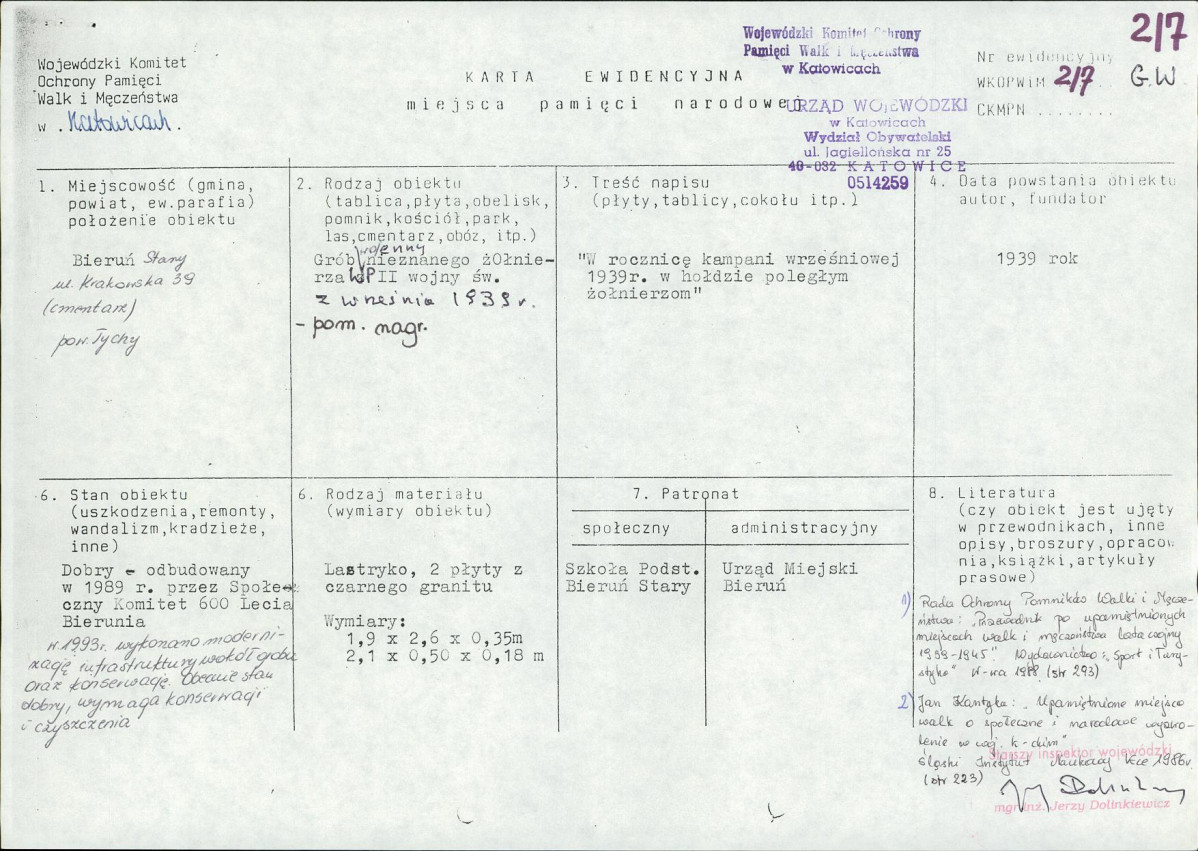 2/7
Wojewódzki Komitet
Ochrony Pamięci
Walk i Męczeństwa
w . Katowicach.
KARTA EWIDENCYJNA
miejsca pamięci narodowej
Wojewódzki Komitet Ochrony
Pamięci Walk i Męczeństwa
w Katowicach
URZĄD WOJEWÓDZKI
w Katowicach
Wydział Obywatelski
ul. Jagiellońska nr 25
40-032 KATOWICE
0514259
Nr ewidencyjny
WKOPWiM 2/7 G.W
CKMPN ........
1. Miejscowość (gmina,
powiat, ew.parafia)
położenie obiektu
Bieruń Stary
ul. Krakowska 39
(cmentarz)
pow. Tychy
2. Rodzaj obiektu
(tablica,płyta,obelisk,
pomnik,kościół,park,
las,cmentarz,obóz, itp.)
wojenny
Grób nieznanego żOłnie-
rza WP II wojny św.
z września 1939 r.
- pom. nagr.
3. Treść napisu
(płyty,tablicy,cokołu itp.)
"W rocznicę kampani wrześniowej
1939r. w hołdzie poległym
żołnierzom"
4. Data powstania obiektu
autor, fundator
1939 rok
6. Stan obiektu
(uszkodzenia,remonty,
wandalizm,kradzieże,
inne)
Dobry - odbudowany
w 1989 r. przez Społe-
czny Komitet 600 Lecia
Bierunia
w 1993r. wykonano moderni-
zację infrastruktury wokół grobu
oraz konserwację. Obecnie stan
dobry, wymaga konserwacji
i czyszczenia
6. Rodzaj materiału
(wymiary obiektu)
Lastryko, 2 płyty z
czarnego granitu
Wymiary:
1,9 x 2,6 x 0,35m
2,1 x 0,50 x 0,18 m
7. Patronat
społeczny
administracyjny
Szkoła Podst.
Bieruń Stary
Urząd Miejski
Bieruń
8. Literatura
(czy obiekt jest ujęty
w przewodnikach, inne
opisy,broszury,opracow
nia,książki,artykuły
prasowe)
1) Rada Ochrony Pomników Walki i Męcze-
ństwa: "Przewodnik po upamiętnionych
miejscach walk i męczeństwa lata wojny
1939-1945" Wydawnictwo: "Sport i Tury-
styka" W-wa 1988 (str 293)
2) Jan Kantyka: "Upamiętnione miejsca
walk o społeczne i narodowe wyzwo-
lenie w woj. k-ckim"
Śląski Instytut Naukowy K-ce 1986r.
(str 223)
Starszy inspektor wojewódzki
mgr inż. Jerzy Dolinkiewicz